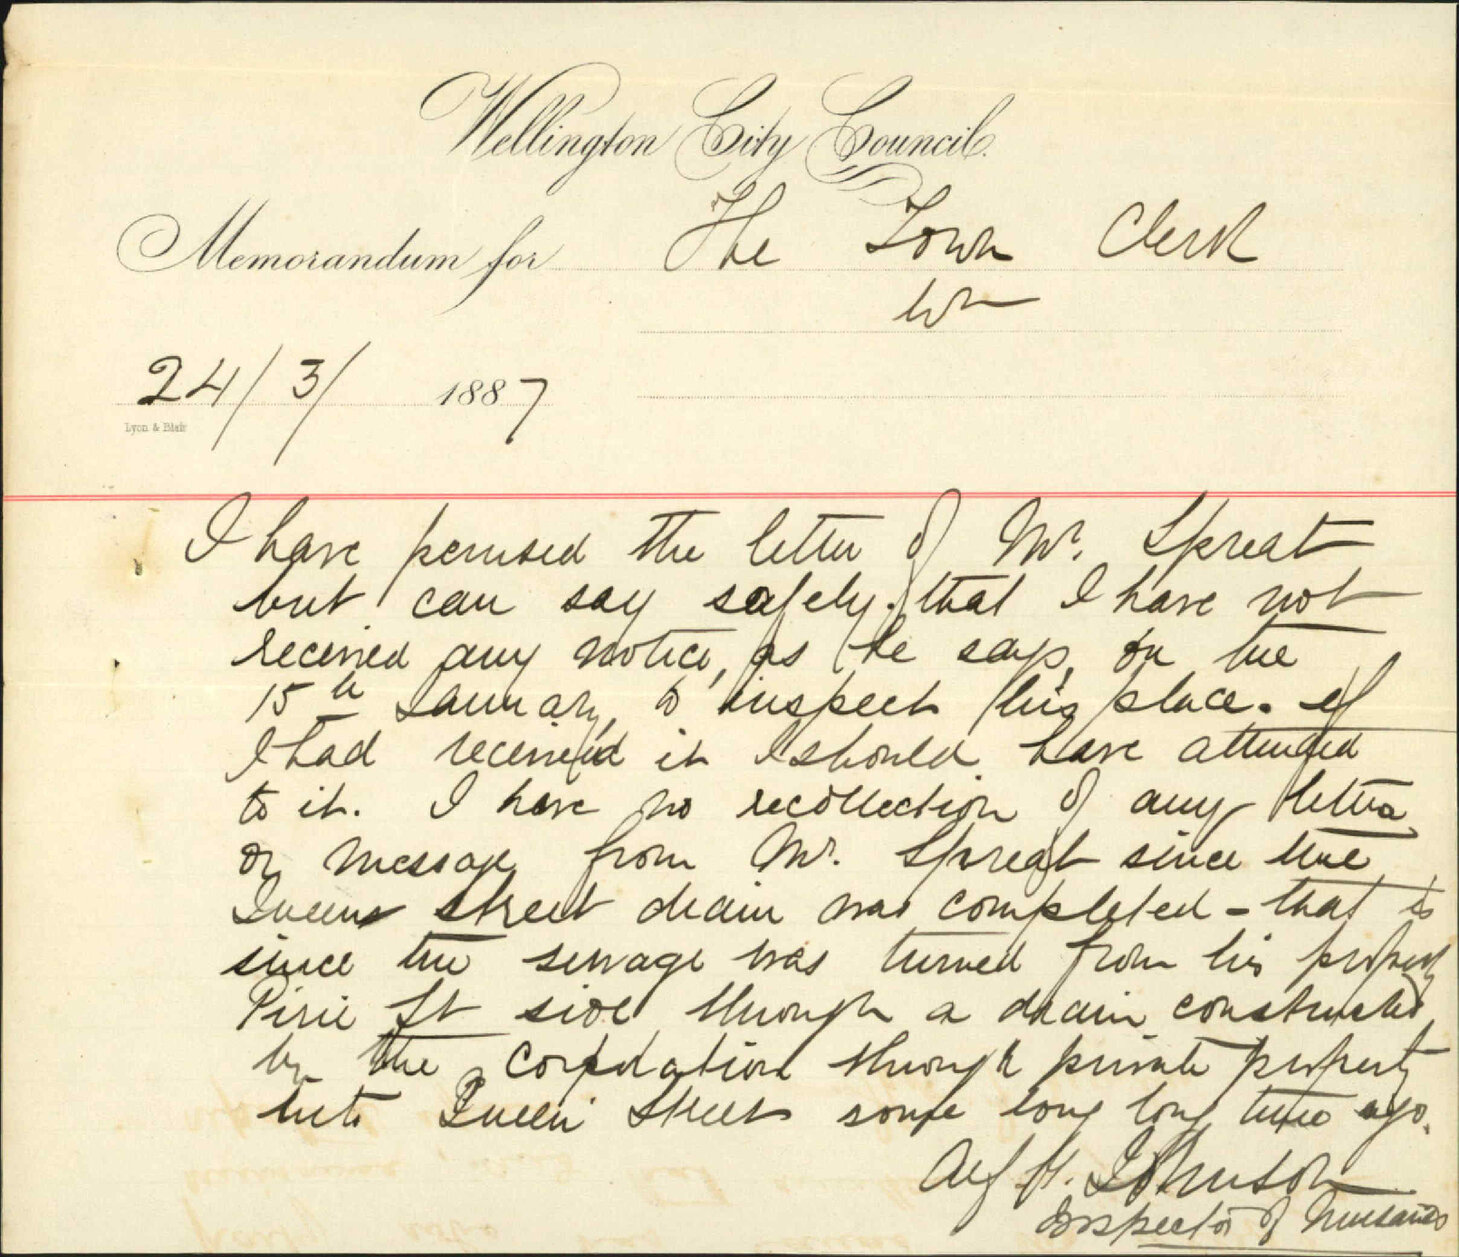 Wellington City Council.
Memorandum for The Town Clerk
Wn
24/3/ 1887
Lyon & Blair
I have perused the letter of Mr. Spreat
but can say safely that I have not
received any notice, as he says, on the
15th January, to inspect his place. If
I had received it I should have attended
to it. I have no recollection of any letter
or message from Mr. Spreat since the
Queens street drain was completed - that is
since the sewage was turned from his property
Pirie St side through a drain constructed
by the corporation through private property
into Queen Street some long long time ago.
Alf H. Johnson
Inspector of Nuisances